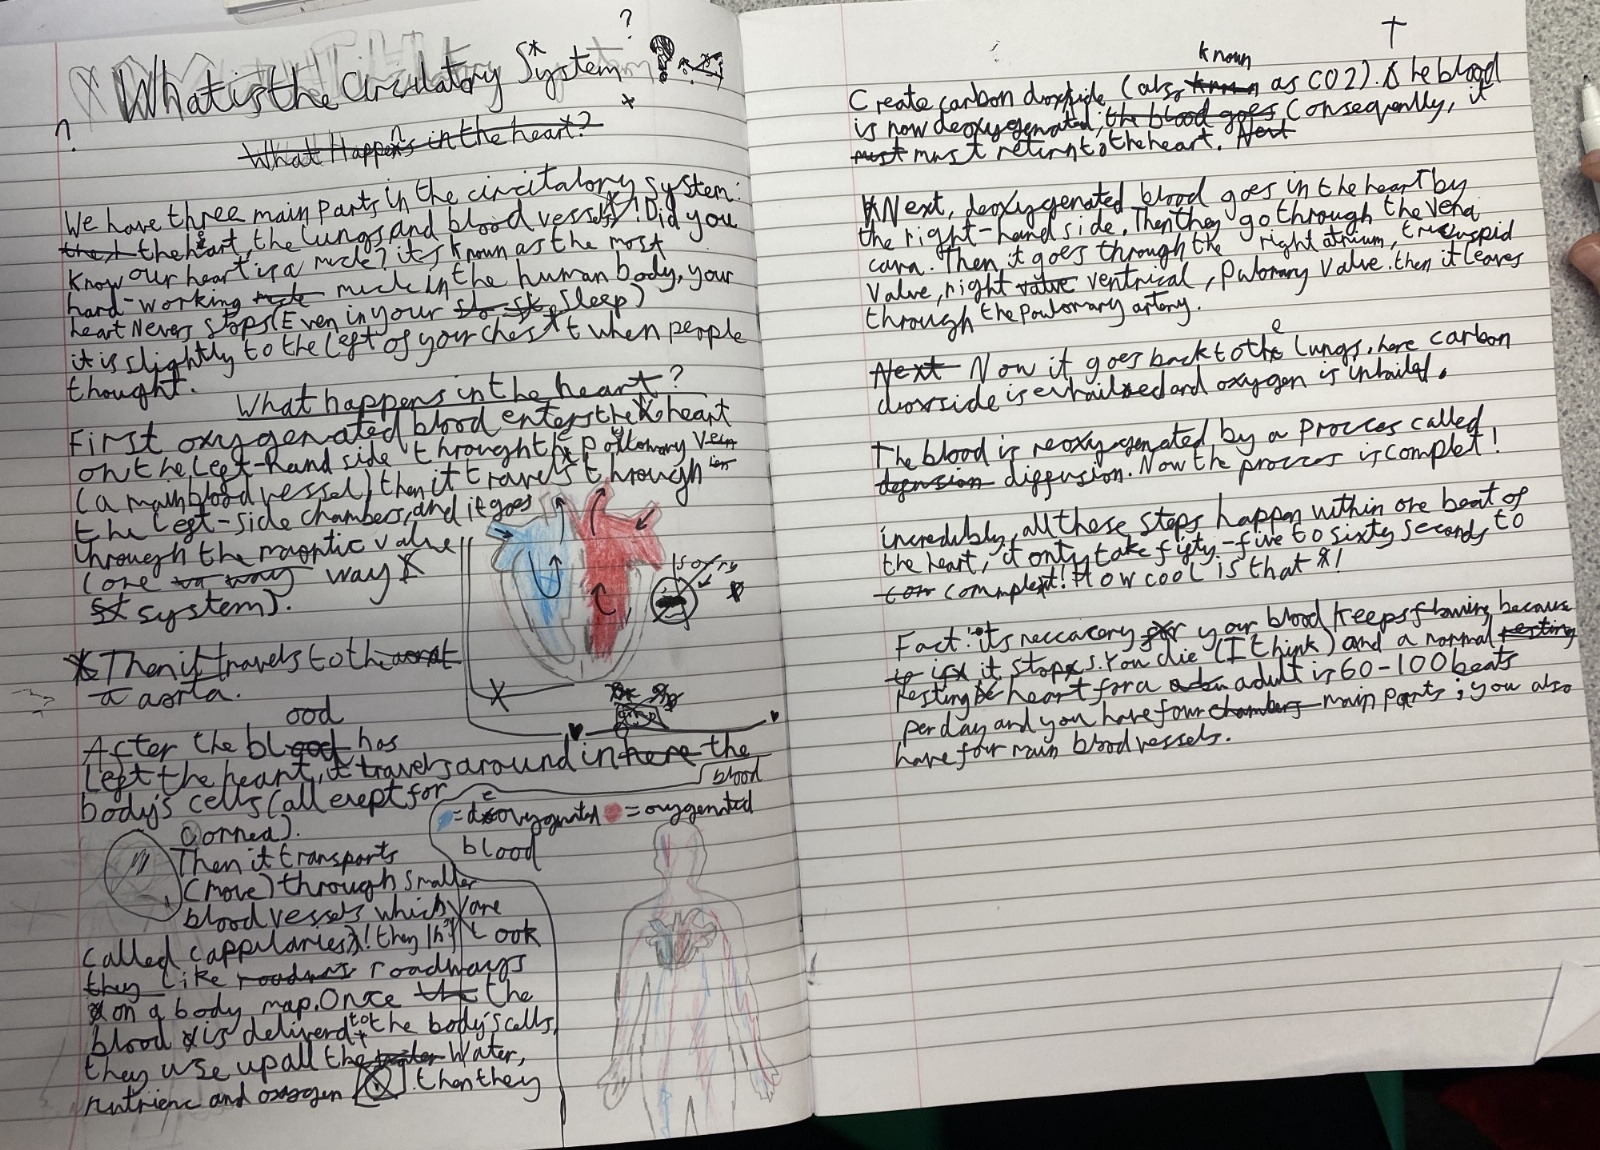 What is the Circulatory System
?
What Happens in the heart?
We have three main parts in the circitalory system:
the heart, the lungs and blood vessels! Did you
know our heart is a mucle? it's known as the most
hard-working mucle in the human body, your
heart Nevers stops (Even in your sleep)
it is slightly to the left of your chest when people
thought.
What happens in the heart?
First oxygenated blood enters the heart
on the left-hand side throught the pollmonary vein
(a main blood vessel) then it travels through
the left-side chambers, and it goes
through the magptic valve
(one way
system).
sorry
Then it travels to the
aorta.
After the blood has
left the heart, it travels around in here the
body's cells (all exept for
cornea).
= deoxygenated = oxygenated
blood
blood
Then it transports
(move) through smaller
blood vessels which are
called cappularies! they look
they like roadways
on a body map. Once the
blood is deliverd to the body's cells,
they use up all the water,
nutrienc and oxogen. then they
Create carbon dioxide (also known as CO2). The blood
is now deoxygenated, the blood goes Consequently, it
must must return to the heart. Next
Next, deoxygenated blood goes in the heart by
the right-hand side. Then they go through the vena
cava. Then it goes through the right atrium, tricuspid
Valve, right valve ventrical, pulorary valve. then it leaves
through the Pulorary artery.
Next Now it goes back to the lungs. here carbon
dioxside is exhailed and oxygen is inhailed.
The blood is reoxygenated by a procces called
diffusion. Now the procces is complet!
incredibly, all these steps happen within one beat of
the heart, it only take fifty-five to sixty seconds to
complext! How cool is that!
Fact: it's neccacery for your blood keeps flowing because
if it stops. You die (I think) and a normal resting
resting heart for a adult is 60-100 beats
per day and you have four chambers main parts; you also
have four main blood vessels.